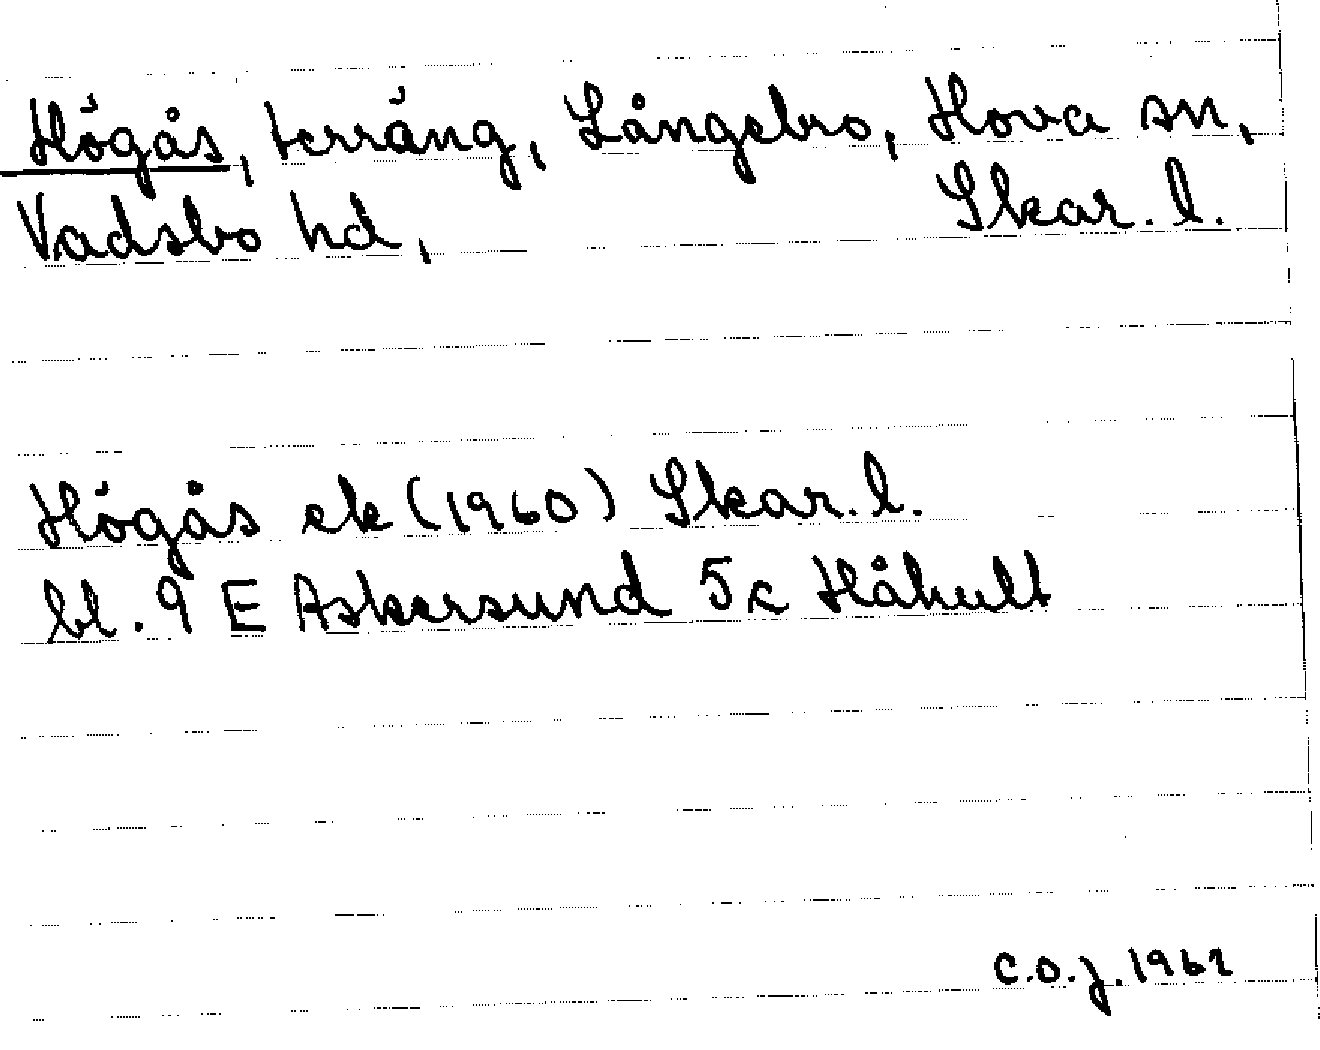 Högås, terräng, Långebro, Hova sn,
Vadsbo hd, Skar. l.
Högås ek (1960) Skar. l.
bl. 9 E Askersund 5c Håhult
C.O.J. 1962